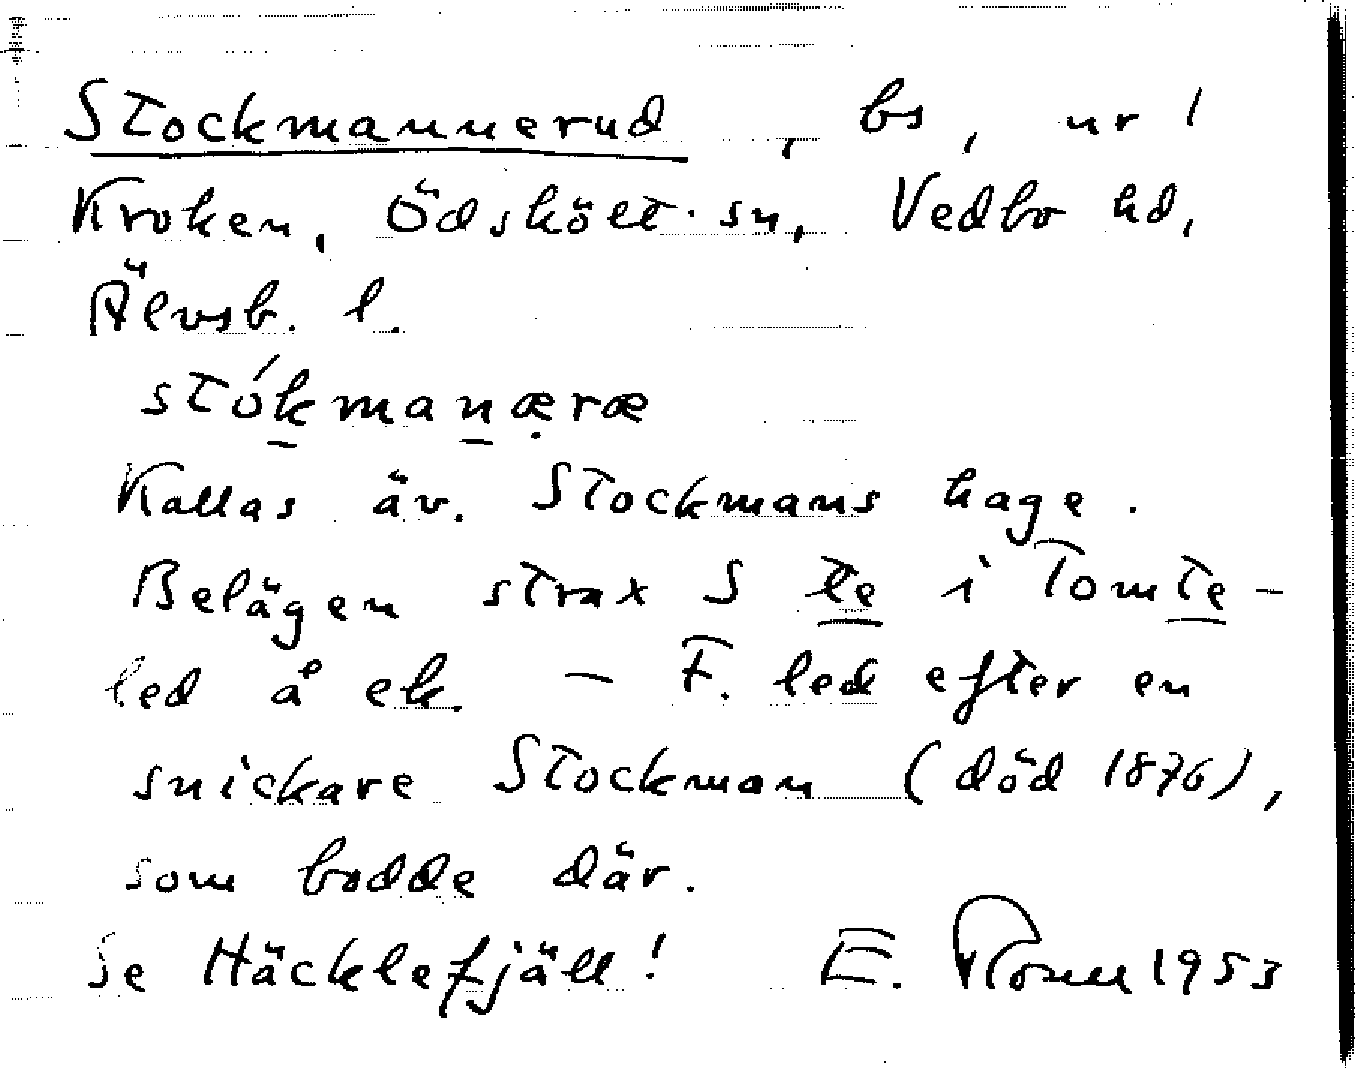 Stockmannerud, bs, ur 1
Kroken, Ödskölt sn, Vedbo hd,
Älvsb. l.
stókmanæræ
Kallas äv. Stockmans hage.
Belägen strax S te i Tomte-
led å ek. - F. led efter en
snickare Stockman (död 1876),
som bodde där.
Se Häcklefjäll! E. 1953